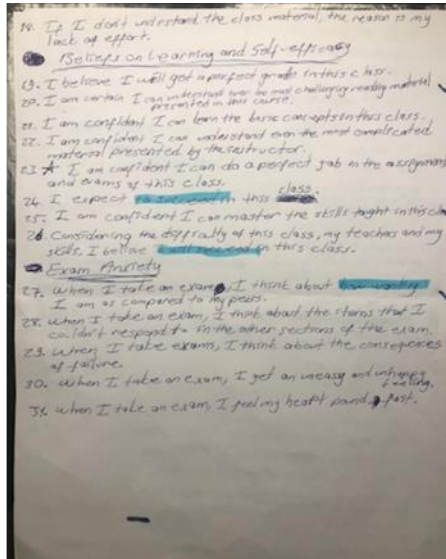 18. If I don't understand the class material, the reason is my
lack of effort.
Beliefs on Learning and Self-efficacy
19. I believe I will get a perfect grade in this class.
20. I am certain I can understand even the most challenging reading material
presented in this course.
21. I am confident I can learn the basic concepts in this class.
22. I am confident I can understand even the most complicated
material presented by the instructor.
23 I am confident I can do a perfect job in the assignments
and exams of this class.
24. I expect to succeed in this class.
25. I am confident I can master the skills taught in this class
26 Considering the difficulty of this class, my teachers and my
skills, I believe I will succeed in this class.
Exam Anxiety
27. When I take an exam, I think about how
I am as compared to my peers.
28. When I take an exam, I think about the items that I
couldn't respond to in the other sections of the exam.
29. When I take exams, I think about the consequences
of failure.
30. When I take an exam, I get an uneasy and unhappy
feeling.
31. When I take an exam, I feel my heart pound fast.